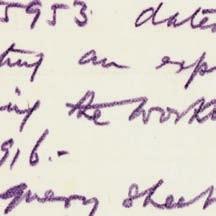 5953 date
ting an exp
ing the work
916.-
query sheet